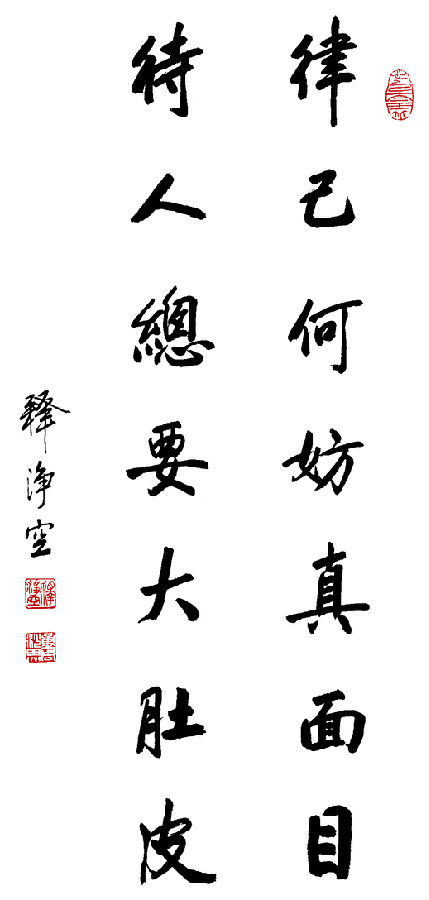 律己何妨真面目
待人總要大肚皮
釋淨空